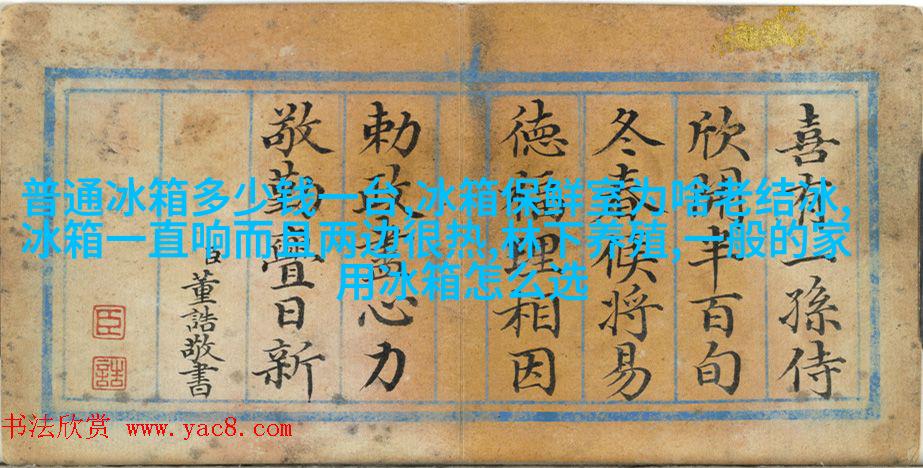 普通冰箱多少钱一台,冰箱保鲜室为啥老结冰,
冰箱一直响而且两边很热,林下养殖,一般的家
用冰箱怎么选
喜有一孫侍
欣開半百旬
冬春候將易
徳福理相因
勅政心力
敬勤亹日新
臣董誥敬書
臣
誥
书法欣赏 www.yac8.com